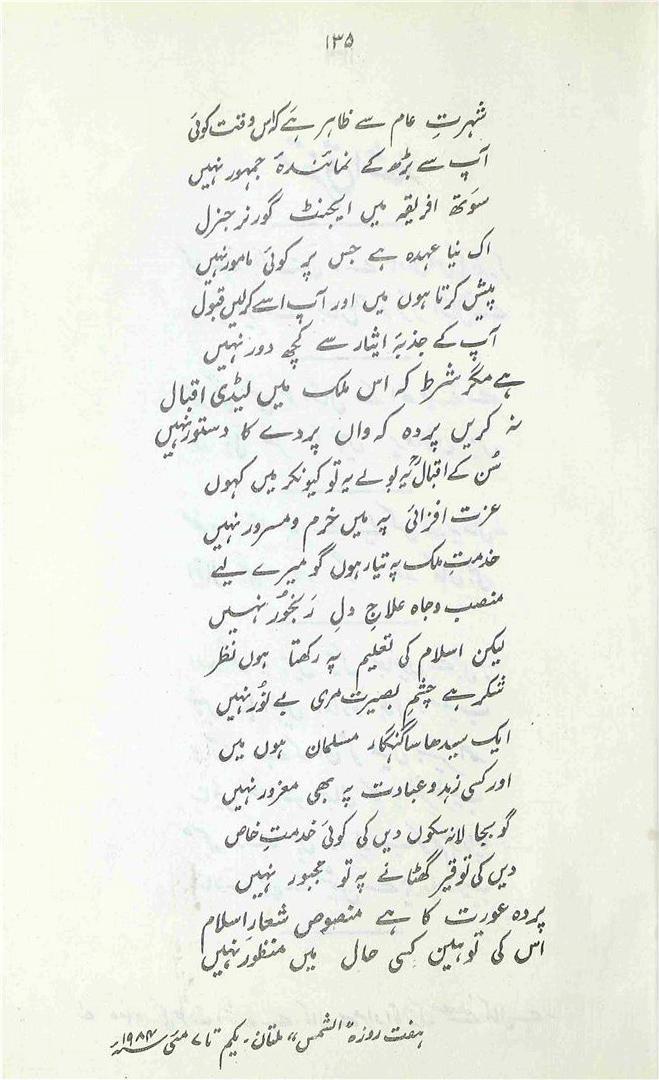 ۱۳۵
شہرتِ عام سے ظاہر ہے کہ اس وقت کوئی
آپ سے بڑھ کے نمائندۂ جمہور نہیں
سوَتھ افریقہ میں ایجنٹ گورنر جنرل
اک نیا عہدہ ہے جس پر کوئی مامور نہیں
پیش کرتا ہوں میں اور آپ اسے کرلیں قبول
آپ کے جذبۂ ایثار سے کچھ دور نہیں
ہے مگر شرط کہ اس ملک میں لیڈی اقبال
نہ کریں پردہ کہ واں پردے کا دستور نہیں
سُن کے اقبالؒ یہ بولے یہ تو کیونکر میں کہوں
عزت افزائی پہ میں خرم و مسرور نہیں
خدمتِ ملک پہ تیار ہوں گو میرے لیے
منصب و جاہ علاجِ دلِ رَنجوُر نہیں
لیکن اسلام کی تعلیم پہ رکھتا ہوں نظر
شکر ہے چشمِ بصیرت مری بے نوُر نہیں
ایک سیدھا سا گنہگار مسلمان ہوں میں
اور کسی زہد و عبادت پہ بھی مغرور نہیں
گو بجا لا نہ سکوں دیں کی کوئی خدمتِ خاص
دیں کی توقیر گھٹانے پہ تو مجبور نہیں
پردہ عورت کا ہے منصوص شعارِ اسلام
اس کی توہین کسی حال میں منظور نہیں
ہفت روزہ "الشمس" ملتان - یکم تا ۷ مئی ۱۹۸۴ء